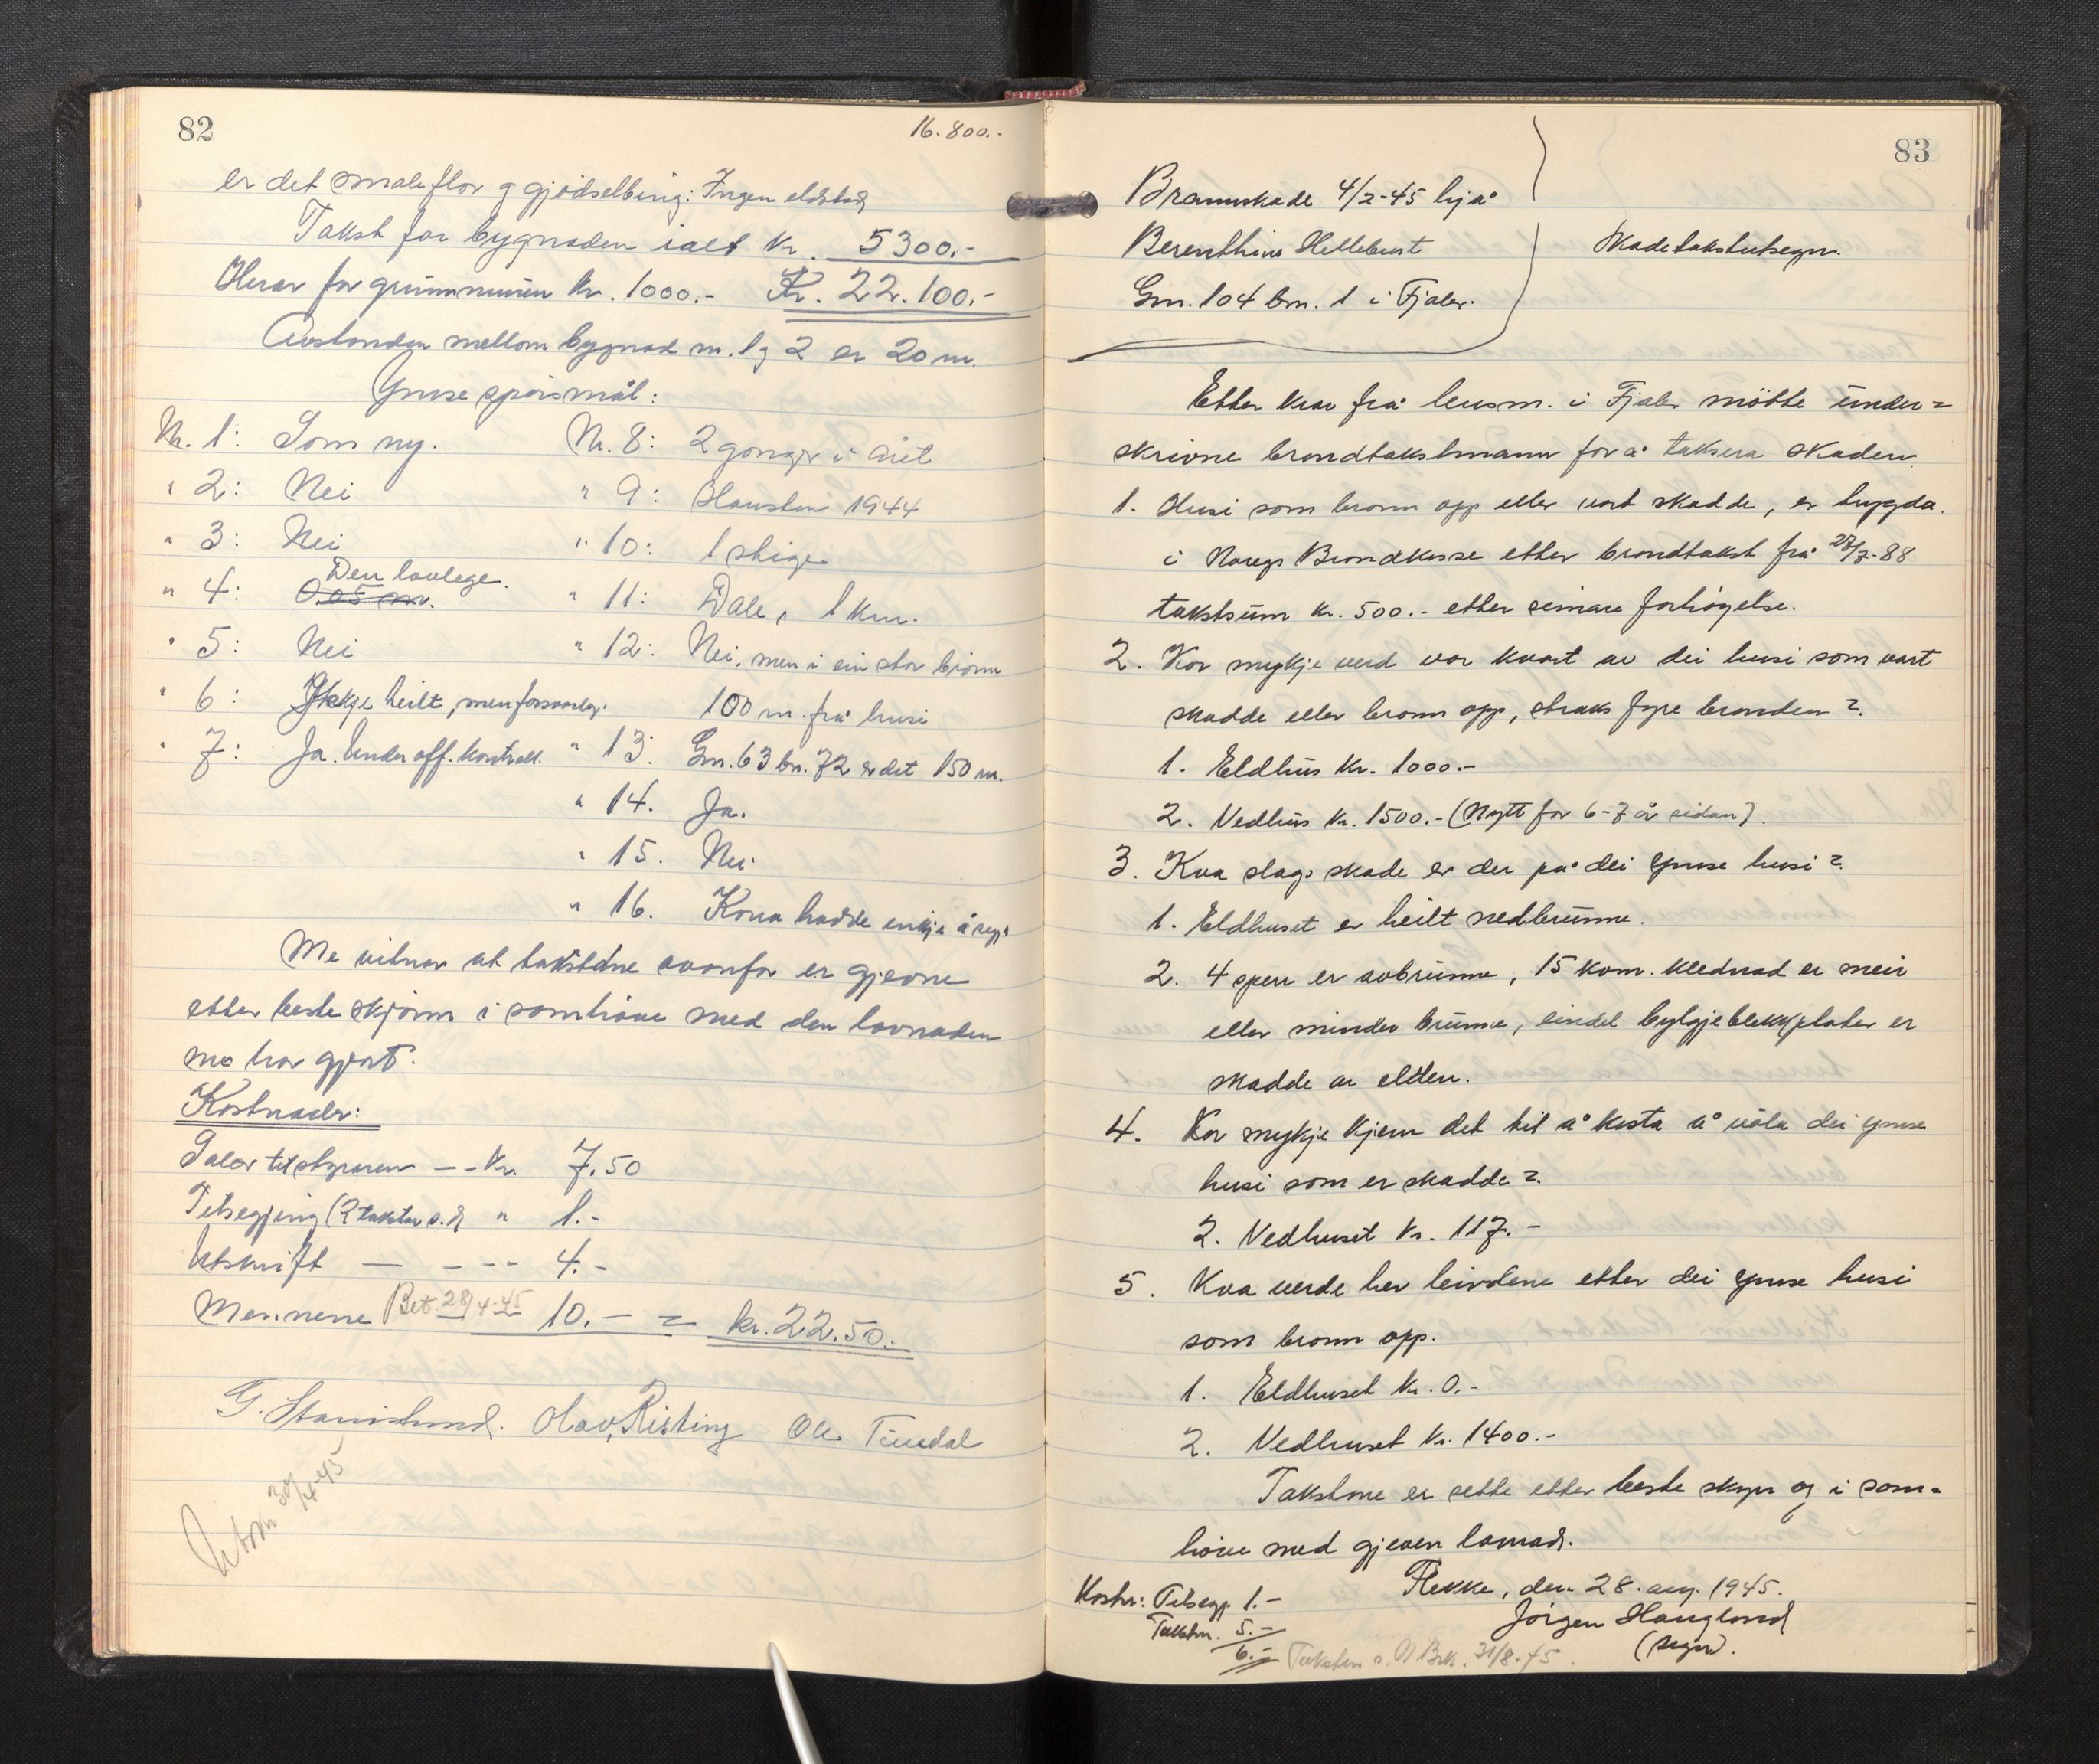 82
16.800.-
er det smaleflor og gjødselbing: Ingen eldstad
Takst for bygnaden ialt kr. 5300.-
Herav for grunnmuren kr. 1000.- Kr. 22.100.-
Avstanden mellom bygnad nr. 1 og 2 er 20 m.
Ymse spørsmål:
Nr. 1: Som ny.
" 2: Nei
" 3: Nei
" 4: Den lovlege.
" 5: Nei
" 6: Ikkje heilt, men forsvarleg.
" 7: Ja. Under off. kontroll.
Nr. 8: 2 gonger i året
" 9: Hausten 1944
" 10: 1 stige
" 11: Dale, 1 km.
" 12: Nei, men i ein stor brønn
100 m. frå husi
" 13: Gnr. 63 bnr. 72 er det 150 m.
" 14. Ja.
" 15. Nei
" 16. Kona hadde inkje å segja
Me vitnar at takstane ovanfor er gjevne
etter beste skjønn i samhøve med den lovnaden
me har gjort.
Kostnader:
Salær til styraren -- kr. 7.50
Tilsegjing (2 takstm. s.d) " 1.-
Utskrift — - -- 4.-
Mennene Bet. 28/4-45 10.- = kr. 22.50.
Olav Risting
Utskr. 30/4-45
83
Brannskade 4/2-45 hjå
Berenthine Hellebust
Gnr. 104 bnr. 1 i Fjaler.
Skadetakstutsegn.
Etter krav frå lensm. i Fjaler møtte under=
skrivne brandtakstmann for å taksera skaden.
1. Husi som brann opp eller vart skadde, er trygda
i Noregs Brandkasse etter brandtakst frå 27/7-88
takstsum kr. 500.- etter seinare forhøgelse.
2. Kor mykje verd var kvart av dei husi som vart
skadde eller brann opp, straks fyre branden?
1. Eldhus kr. 1000.-
2. Vedhus kr. 1500.- (Nytt for 6-7 år sidan).
3. Kva slags skade er der på dei ymse husi?
1. Eldhuset er heilt nedbrunne.
2. 4 sperr er avbrunne, 15 kvm. klednad er meir
eller minder brunne, eindel bylgjeblekkplater er
skadde av elden.
4. Kor mykje kjem det til å kosta å vøla dei ymse
husi som er skadde?
2. Vedhuset kr. 117.-
5. Kva verde hev leivdene etter dei ymse husi
som brann opp.
1. Eldhuset kr. 0.-
2. Vedhuset kr. 1400.-
Takstane er sette etter beste skyn og i sam=
høve med gjeven lovnad.
Flekke, den 28. aug. 1945.
Jörgen Hauglund
(sign).
Kostn: Tilsegj. 1.-
Takstm. 5.-
6.- Taksten s. N. Brk. 31/8-45.